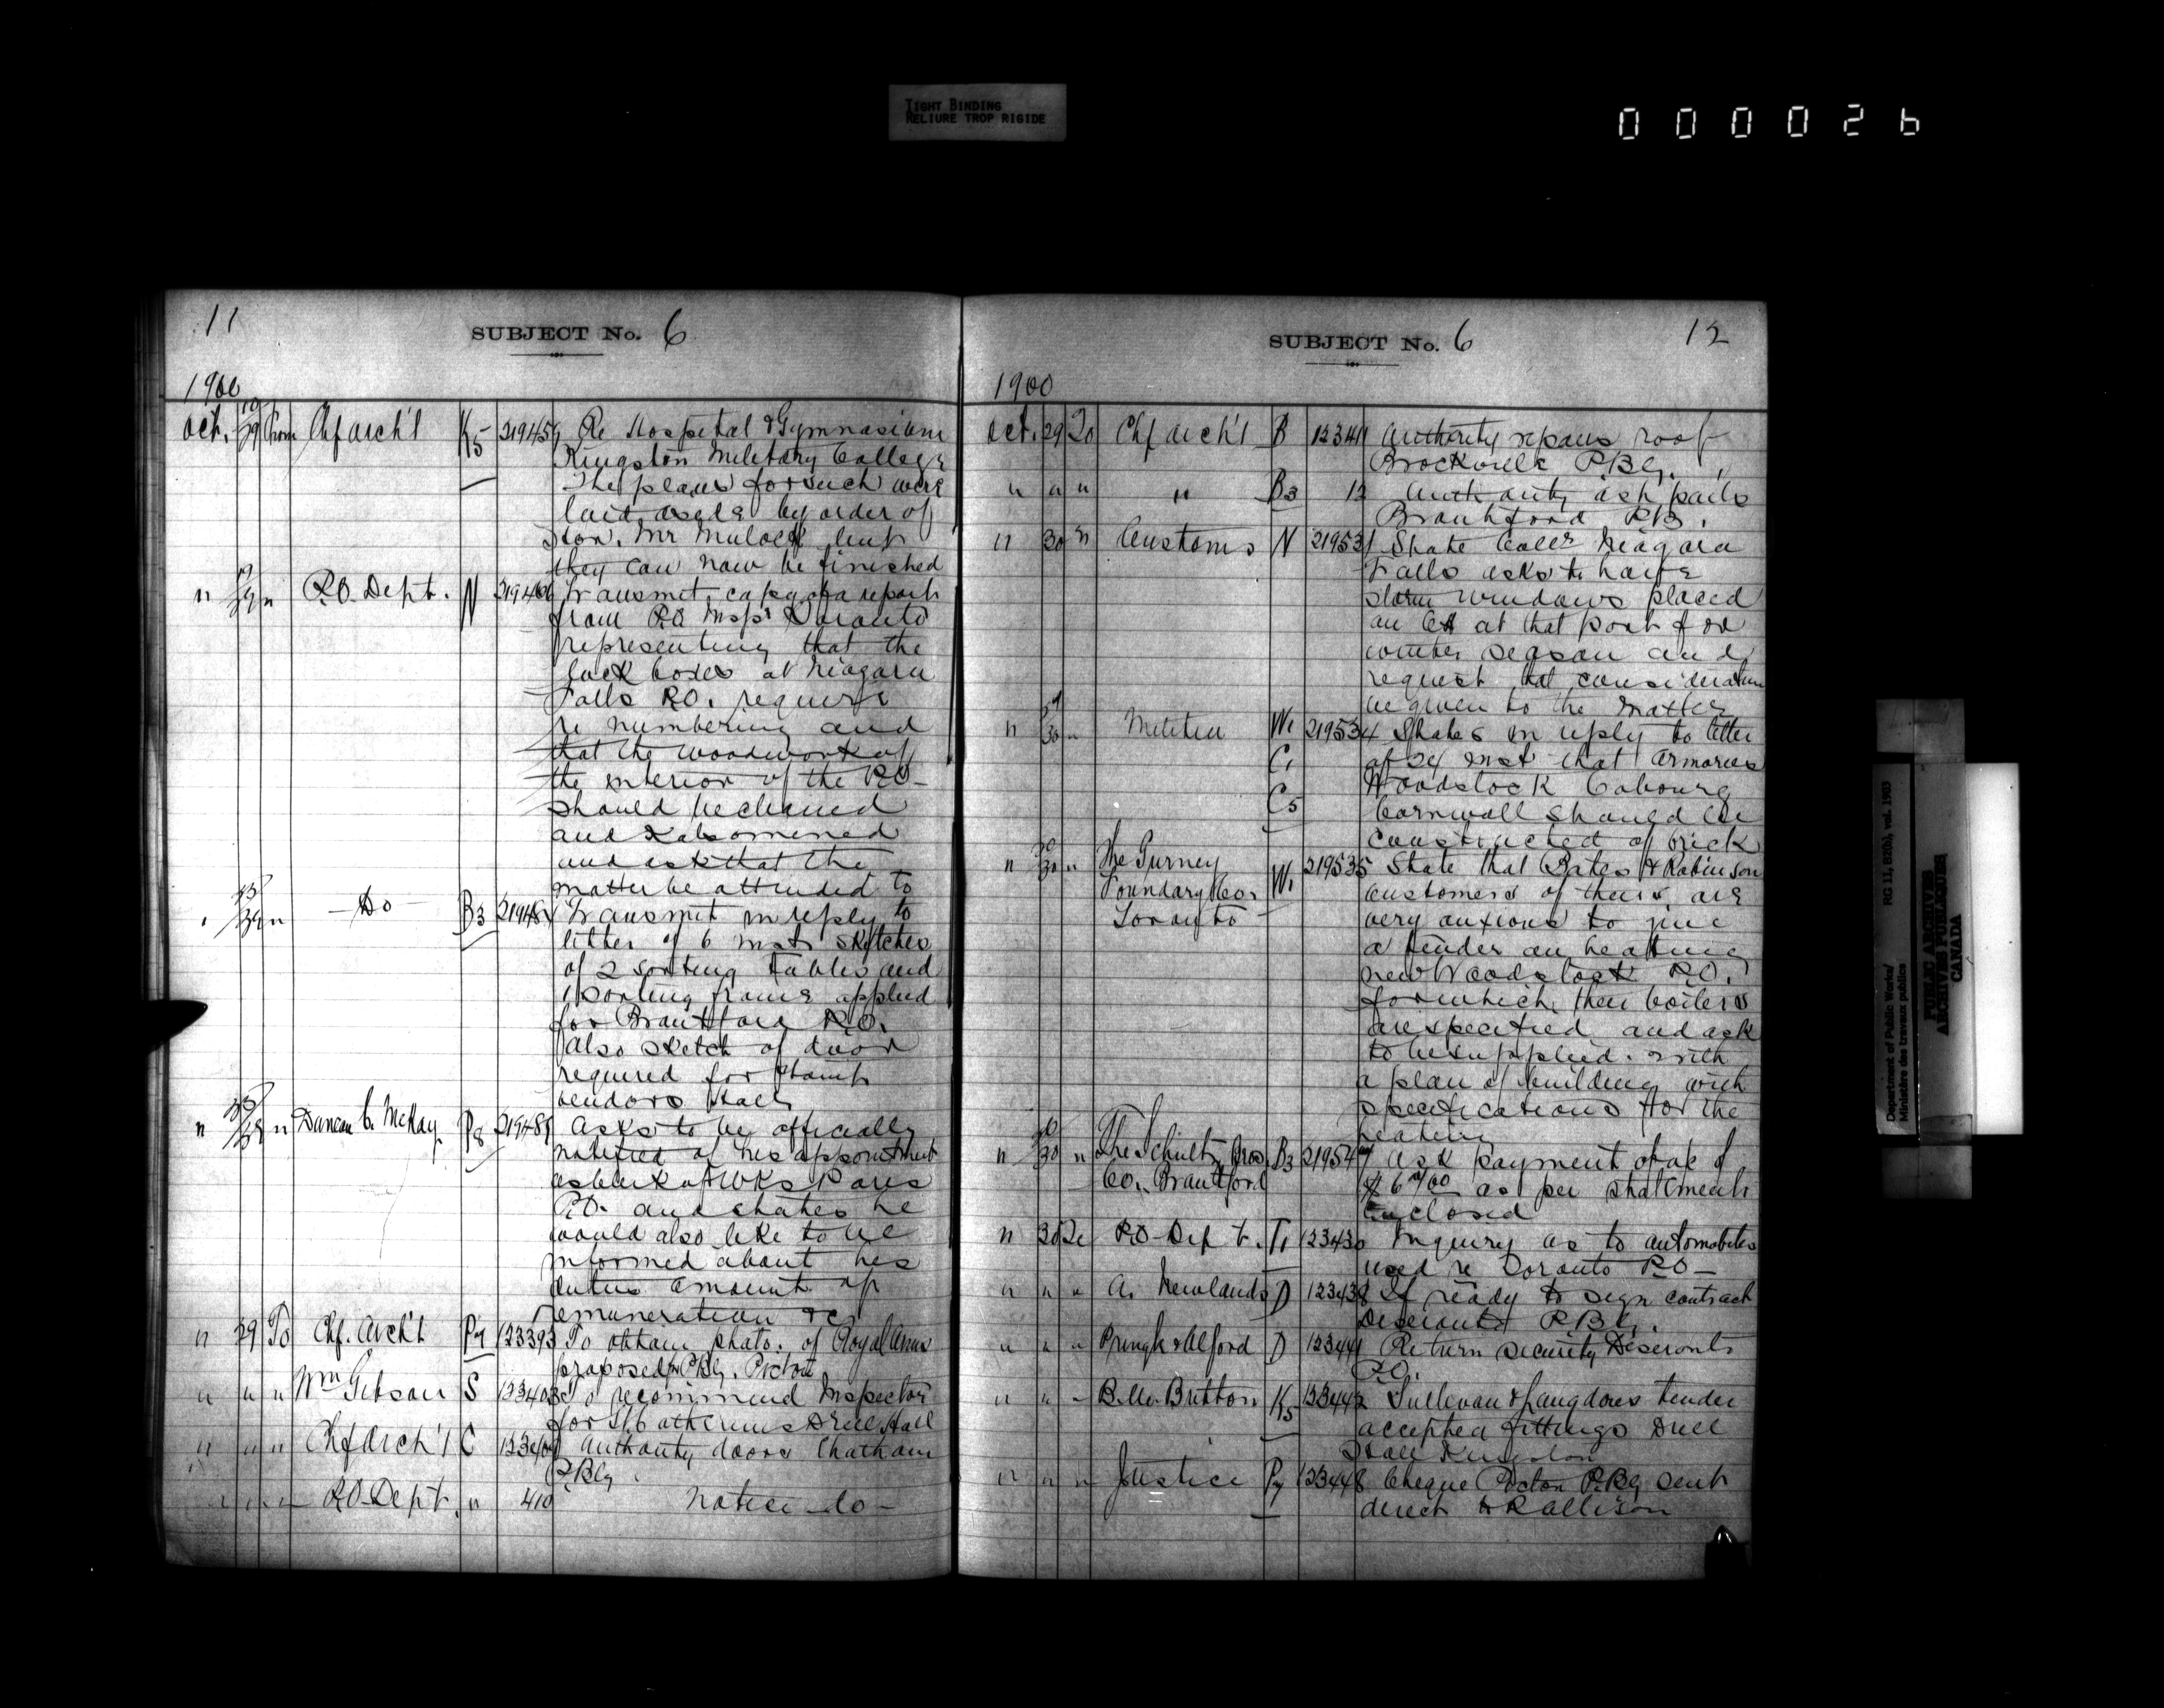 TIGHT BINDING
RELIURE TROP RIGIDE
000026
11
SUBJECT No. 6
1900
Oct. 19/29 from Chf arch't K5 219459 Re Hospital & Gymnasium
Kingston Military College
The plans for such were
laid aside by order of
Hon. Mr Mulock but
they can now be finished
" 29 " P.O. Dept. N Transmit copy of a report
from P.O Insp'r Toronto
representing that the
lock boxes at Niagara
Falls P.O. require
re numbering and
that the woodwork of
the interior of the P.O-
should be cleaned
and Kalsomined
and ask that the
matter be attended to
" 29 " -Do- B3 Transmit in reply to
letter of 6 inst sketches
of 2 sorting tables and
1 sorting frame applied
for Brantford P.O.
also sketch of door
required for stamp
vendors Hall
" " Duncan C. McKay P8 asks to be officially
notified of his appointment
as clerk of WKs Paris
P.O. and states he
would also like to be
informed about his
duties amount of
remuneration &c
" 29 To Chf. Arch't P7 123393 To obtain photo. of Royal Arms
proposed for P.Blg. Picton
" " " Wm Gibson S 123403 To recommend Inspector
for St. Catherines Drill Hall
" " " Chf Arch't C Authority doors Chatham
P.Blg.
" " " P.O-Dept. " 410 Notice -do-
SUBJECT No. 6
12
1900
Oct. 29 To Chf arch't B 12341 Authority repairs roof
Brockville P.Blg.
" " " " B3 12 Authority ash pails
Brantford P.B.
" 30 " Customs N 219531 State Collr Niagara
Falls asks to have
storm windows placed
on CH at that port for
winter season and
request that consideration
be given to the matter
" 30 " Militia W1 219534 States in reply to letter
C1 of 24 inst that armories
C5 Woodstock Cobourg
Cornwall should be
constructed of brick
" 30 " The Gurney W1 219535 State that Bates & Robinson
Foundary Co. customers of theirs are
Toronto very anxious to give
a tender on heating
new Woodstock P.O.
for which their boilers
are specified and ask
to be supplied with
a plan of building with
specifications for the
heating
" 30 " The Schultz Bros. B3 219547 ask payment of a/c of
Co., Brantford as per statement
enclosed
" 30 To P.O-Dept. T1 123430 Inquiry as to automobiles
used re Toronto P.O-
" " " A. Newlands D 123438 If ready to sign contract
Deseronto P.Blg.
" " " Pringle & Alford D 123441 Return security Deseronto
P.O.
" " " B.M. Britton K5 123442 Sullivan & Langdons tender
accepted fittings Drill
Hall Kingston
" " " Justice P7 123448 Cheque Picton P.Blg sent
direct to R Allison
Department of Public Works/
Ministère des travaux publics
RG 11, B2(b), vol. 1903
PUBLIC ARCHIVES
ARCHIVES PUBLIQUES
CANADA